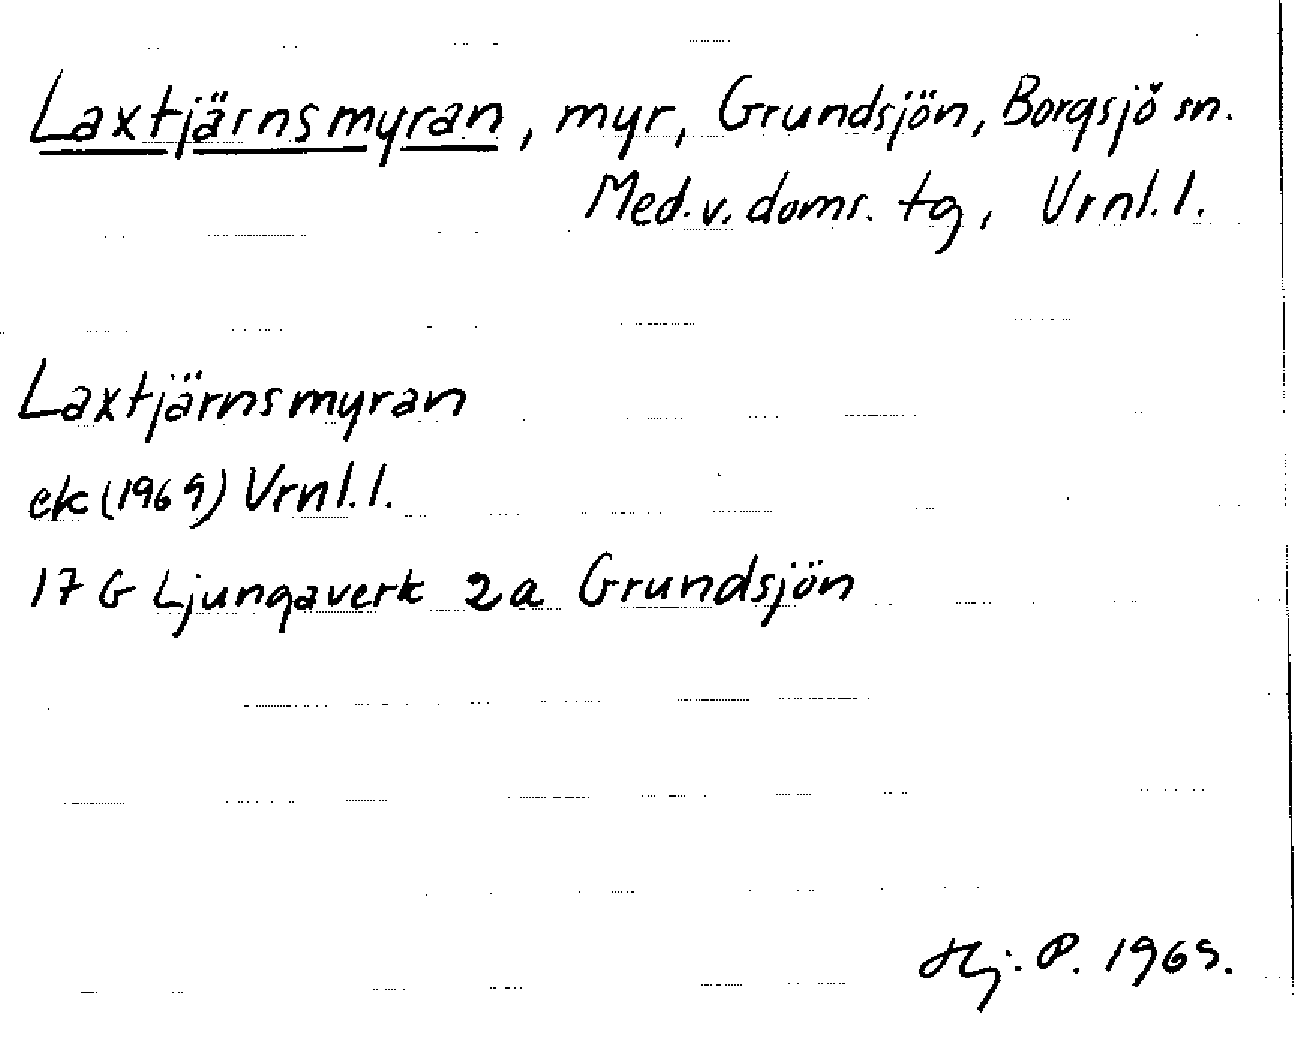 Laxtjärnsmyran, myr, Grundsjön, Borgsjö sn.
Med. v. doms. tg, Vrnl. l.
Laxtjärnsmyran
ek (1969) Vrnl. l.
17 G Ljungaverk 2a Grundsjön
Hj. P. 1969.